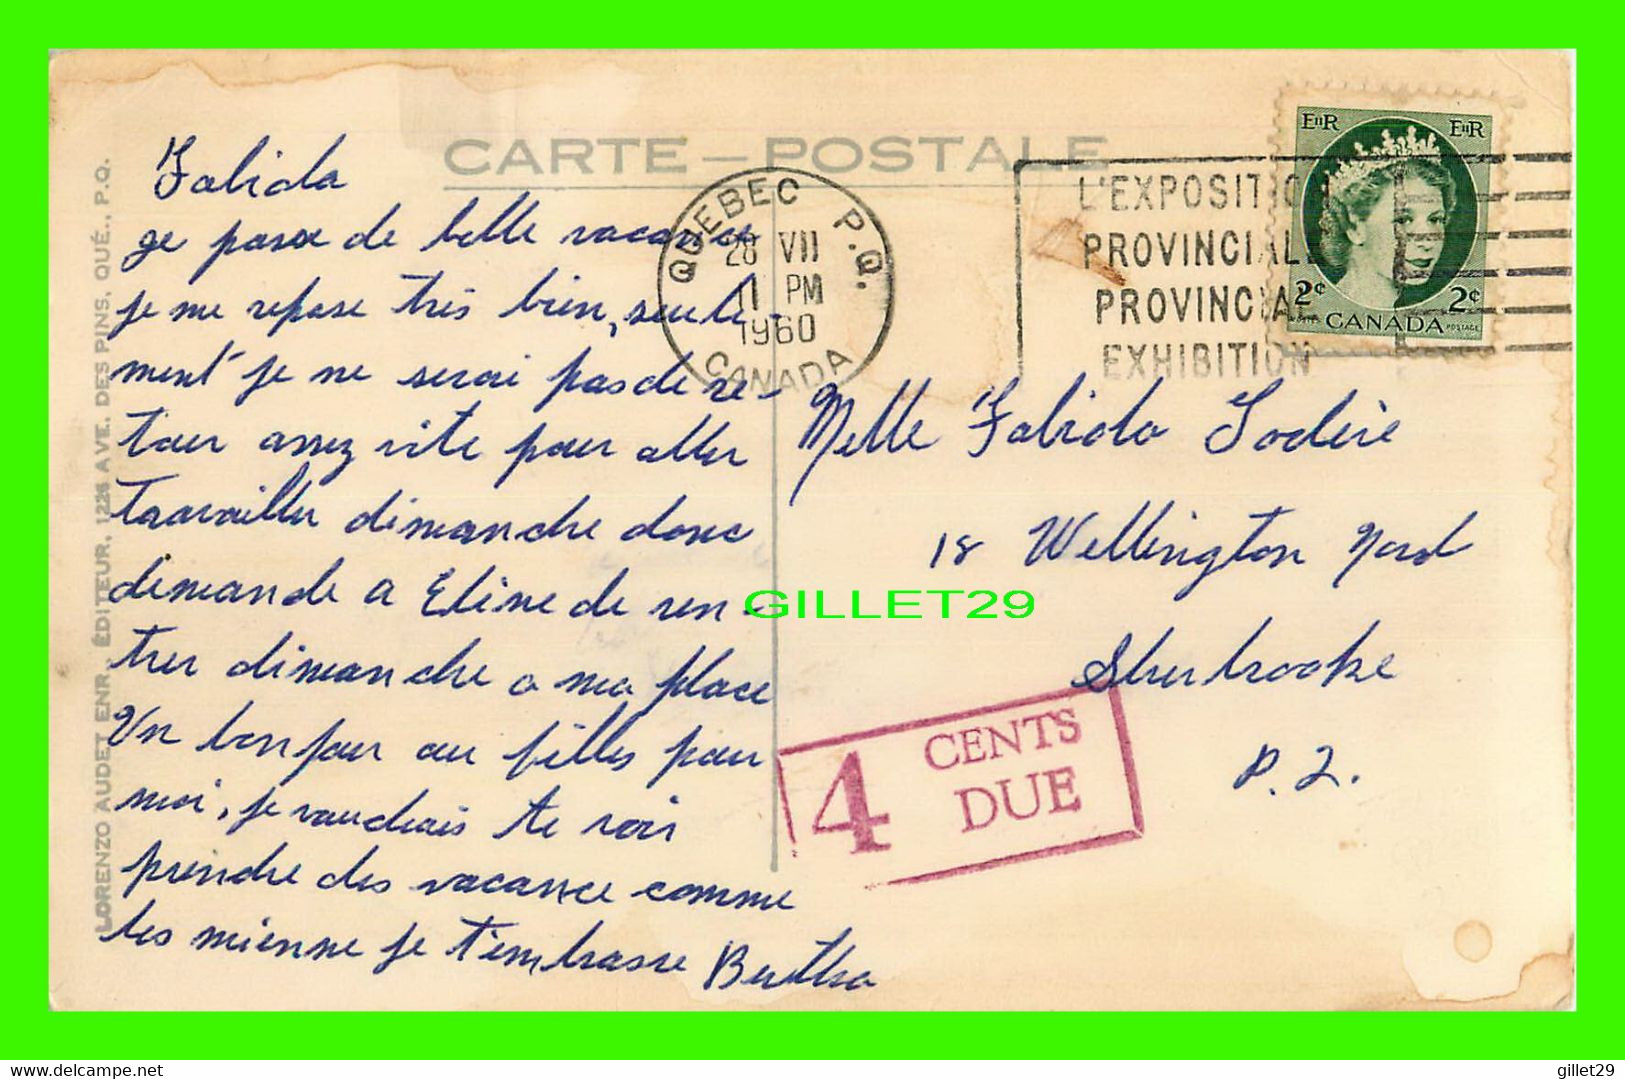 CARTE — POSTALE
LORENZO AUDET ENR., ÉDITEUR, 1226 AVE. DES PINS, QUÉ., P.Q.
Fabiola
je passe de belle vacance
je me repose très bien, seule-
ment je ne serai pas de re-
tour assez vite pour aller
travailler dimanche donc
demande a Eline de ren-
trer dimanche a ma place
Un bonjour au filles pour
moi, je voudrais te voir
prendre des vacance comme
les mienne je t'embrasse Bertha
QUEBEC P.Q.
28 VII
11 PM
1960
CANADA
L'EXPOSITION
PROVINCIALE
PROVINCIAL
EXHIBITION
EIIR EIIR
2¢ 2¢
POSTES CANADA POSTAGE
Melle Fabiola Sodère
18 Wellington Nord
Sherbrooke
P.Q.
4 CENTS
DUE
GILLET29
gillet29